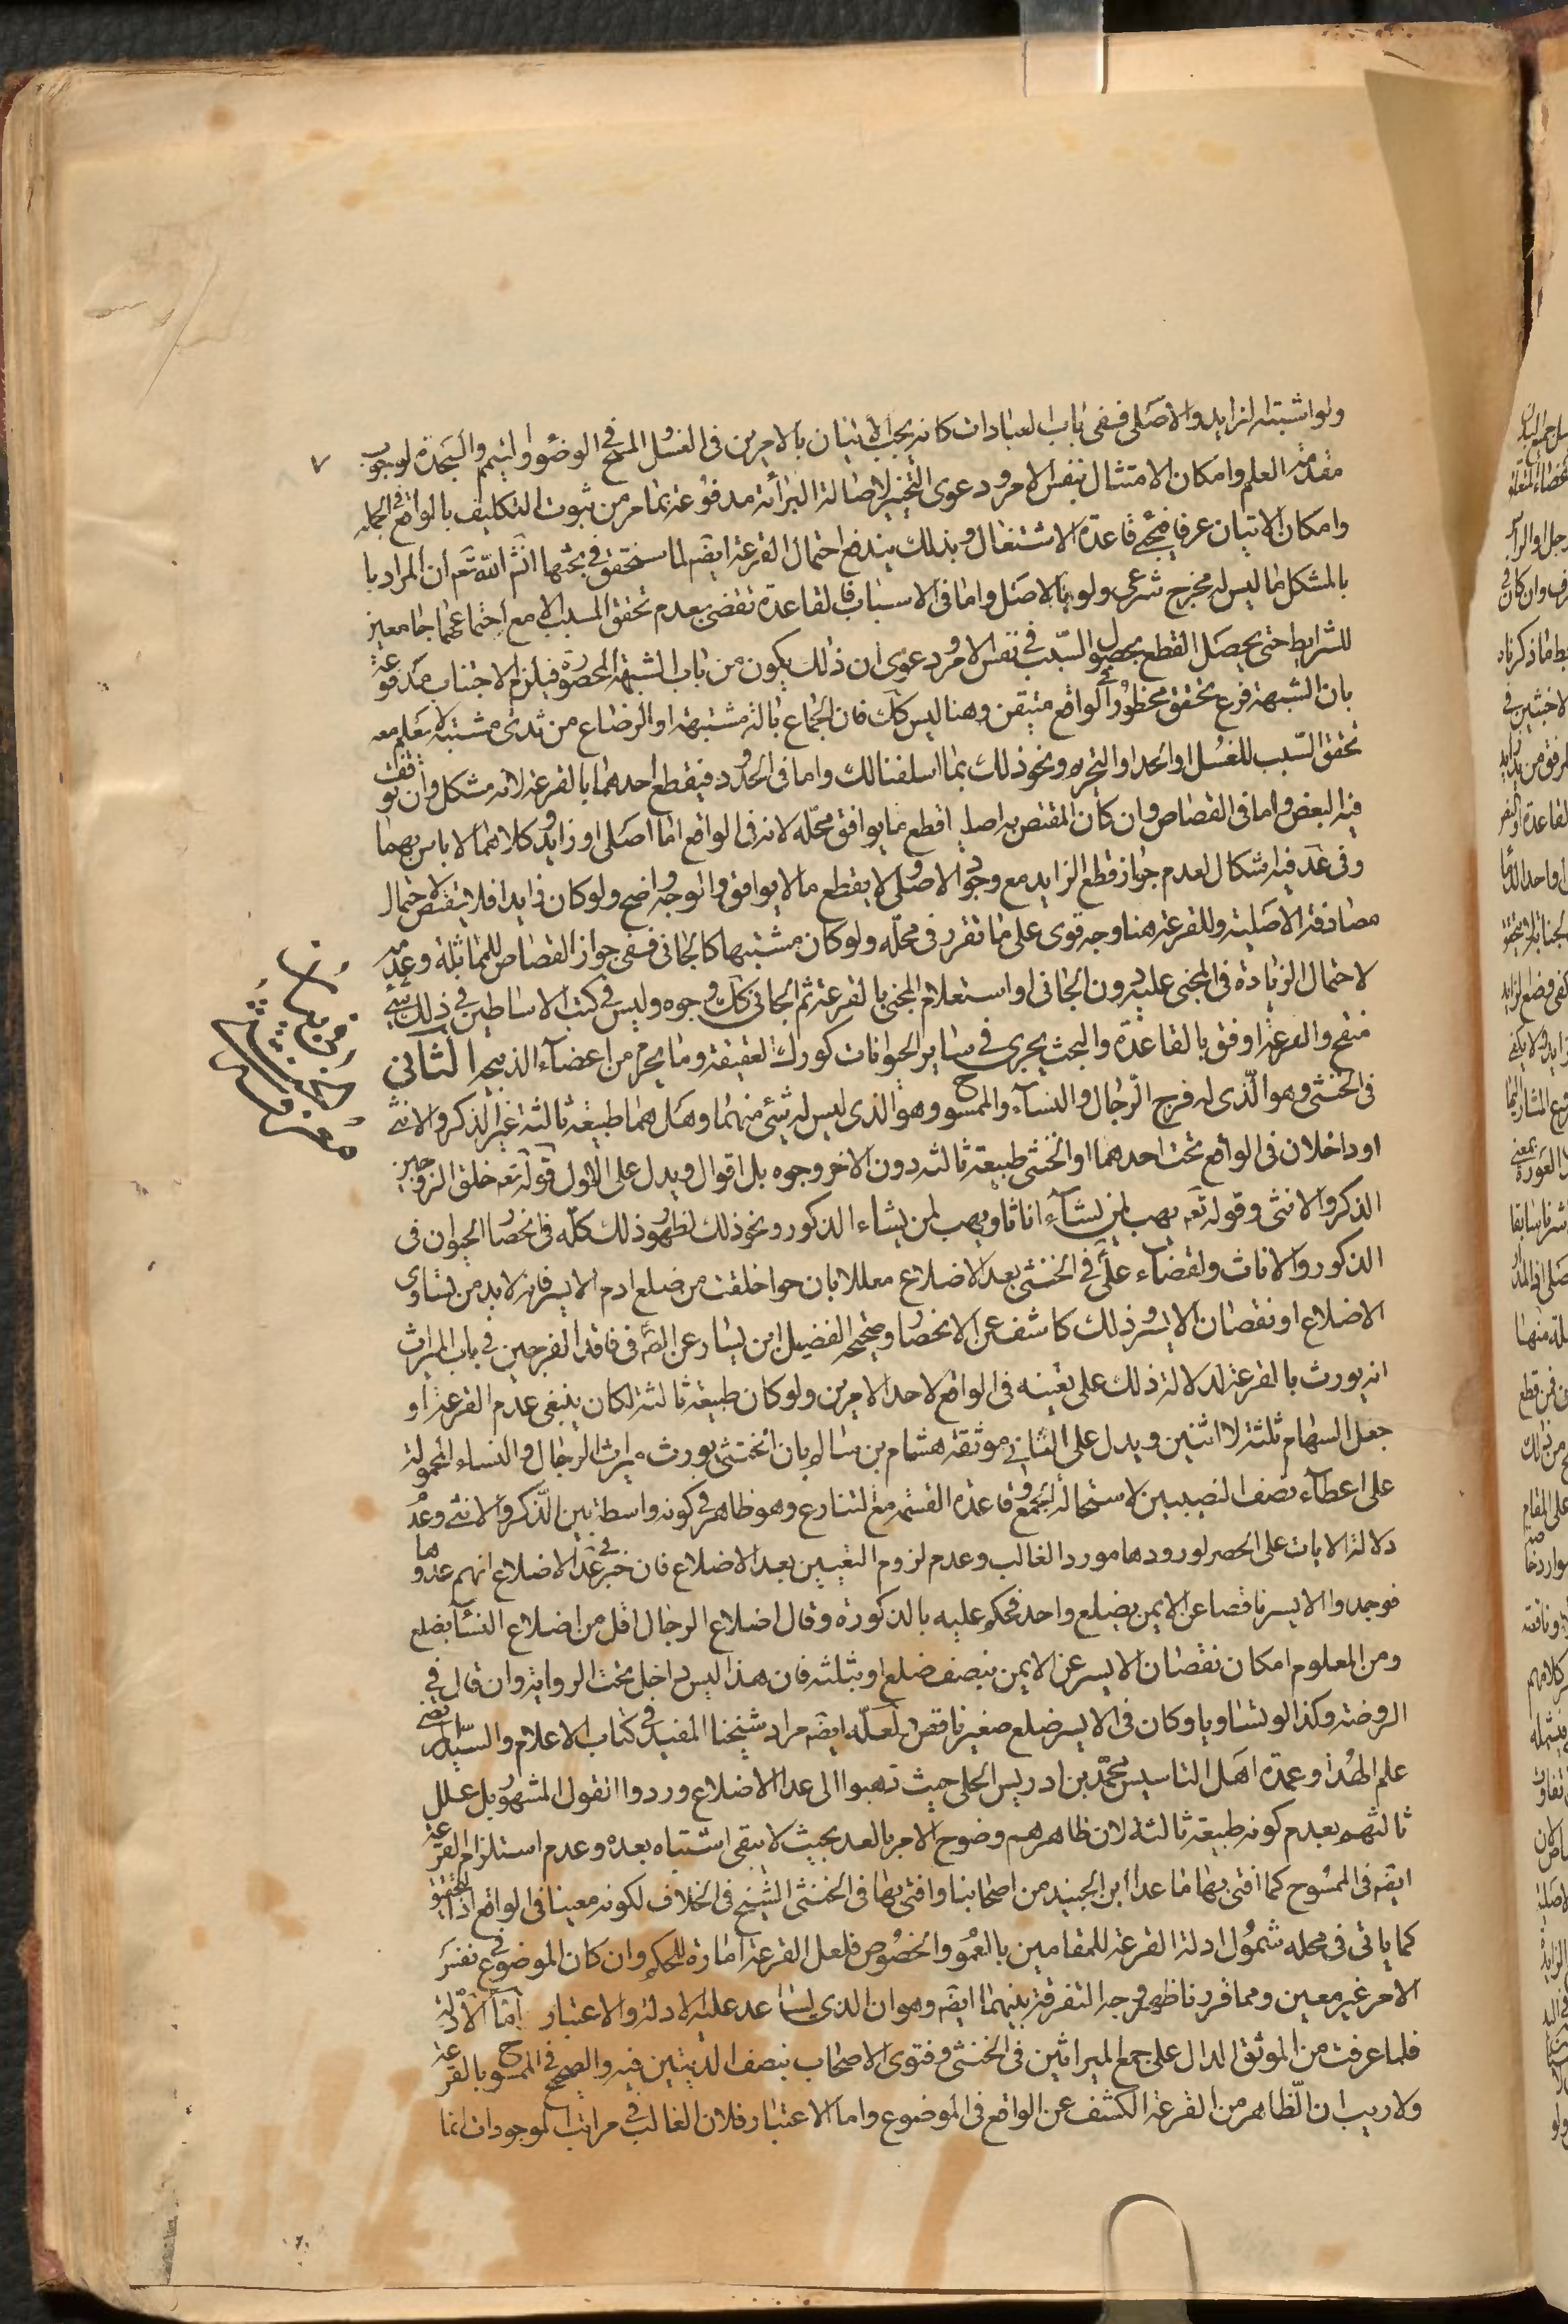 ولو اشتبه الزايد والاصلى ففى باب العبادات كانه يجب الاتيان بالامرين فى الغسل والمسح فى الوضوء والتيمم والسجدة لوجوب
مقدمة العلم وامكان الامتثال بنفس الامر ودعوى التخيير لاصالة البرائة مدفوعة بما مر من ثبوت التكليف بالواقع فى الجمله
وامكان الاتيان عرفا فيجئ قاعدة الاشتغال وبذلك يندفع احتمال القرعة ايضم لما سنحقق فى بحثها انشم الله تعم ان المراد با
بالمشكل ما ليس له مخرج شرعى ولو بالاصل واما فى الاسباب فالقاعدة تقضى بعدم تحقق المسبب الا مع اجتماعهما جامعين
للشرايط حتى يحصل القطع بحصول السبب فى نفس الامر ودعوى ان ذلك يكون من باب الشبهة المحصورة فيلزم الاجتناب مدفوعة
بان الشبهة فرع تحقق محظور فى الواقع متيقن وهنا ليس كك فان الجماع بالة مشتبهة او الرضاع من ثدى مشتبه لا يعلم معه
تحقق السبب للغسل او الحد او التحريم ونحو ذلك بما اسلفنا لك واما فى الحدود فيقطع احدهما بالقرعة لانه مشكل وان توقف
فيه البعض واما فى القصاص وان كان المقتص به اصليا قطع ما يوافق محله لانه فى الواقع اما اصلى او زايد وكلاهما لا باس بهما
وفى عد فيه اشكال لعدم جواز قطع الزايد مع وجود الاصلى ولا يقطع ما لا يوافق والوجه واضح ولو كان زايدا فلا يقتص لاحتمال
مصادفة الاصلية وللقرعة هنا وجه قوى على ما تقرر فى محله ولو كان مشتبها كالجانى ففى جواز القصاص للمماثلة وعدمه
لاحتمال الزيادة فى المجنى عليه دون الجانى او استعلام المجنى بالقرعة ثم الجانى كك وجوه وليس فى كتب الاساطين فى ذلك شئ
منقح والقرعة اوفق بالقاعدة والبحث يجرى فى ساير الحيوانات كورك العقيقة وما يحرم من اعضاء الذبيحة الثانى
فى الخنثى وهو الذى له فرج الرجال والنساء والممسوح وهو الذى ليس له شئ منهما وهل هما طبيعة ثالثة غير الذكر والانثى
او داخلان فى الواقع تحت احدهما او الخنثى طبيعة ثالثه دون الاخر وجوه بل اقوال ويدل على الاول قوله تعه خلق الزوجين
الذكر والانثى وقوله تعه يهب لمن يشآء اناثا ويهب لمن يشاء الذكور ونحو ذلك لظهور ذلك كله فى انحصار الحيوان فى
الذكور والاناث ولقضاء على فى الخنثى بعد الاضلاع معللا بان حوا خلقت من ضلع ادم الايسر فانه لا بد من تساوى
الاضلاع او نقصان الايسر وذلك كاشف عن الانحصار وصحيحة الفضيل ابن يسار عن الصم فى فاقد الفرجين فى باب الميراث
انه يورث بالقرعة لدلالة ذلك على تعينه فى الواقع لاحد الامرين ولو كان طبيعة ثالثة لكان ينبغى عدم القرعة او
جعل السهام ثلثة لا اثنين ويدل على الثانى موثقة هشام بن سالم بان الخنثى يورث ميراث الرجال والنساء المحمولة
على اعطآء نصف النصيبين لاستحالة الجمع وقاعدة القسمة مع التنازع وهو ظاهر فى كونه واسطة بين الذكر والانثى وعدم
دلالة الايات على الحصر لورودها مورد الغالب وعدم لزوم التعيين بعد الاضلاع فان فى خبر عد الاضلاع انهم عدوها
فوجدوا الايسر ناقصا عن الايمن بضلع واحد فحكم عليه بالذكورة وقال اضلاع الرجال اقل من اضلاع النسآء بضلع
ومن المعلوم امكان نقصان الايسر عن الايمن بنصف ضلع او بثلثه فان هذا ليس داخل تحت الرواية وان قال فى
الروضة وكذا لو تساويا وكان فى الايسر ضلع صغير ناقص لعله ايضه مراد شيخنا المفيد فى كتاب الاعلام والسيد المرتضى
علم الهدى وعمدة اهل التاسيس محمد بن ادريس الحلى حيث ذهبوا الى عد الاضلاع وردوا القول المشهور بل علل
ثالثهم بعدم كونه طبيعة ثالثة لان ظاهرهم وضوح الامر بالعد بحيث لا يبقى اشتباه بعده وعدم استلزام القرعة
ايضه فى الممسوح كما افتى بها ما عدا ابن الجنيد من اصحابنا وافتى بها فى الخنثى الشيخ فى الخلاف لكونه معينا فى الواقع اذ التحقيق
كما ياتى فى محله شمول ادلة القرعة للمقامين بالعموم والخصوص فلعل القرعة امارة للحكم وان كان الموضوع فى نفس
الامر غير معين ومما قررنا ظهر وجه التفرقة بينهما ايضه وهو ان الذى يساعد عليه الادلة والاعتبار اما الادلة
فلما عرفت من الموثق الدال على جمع الميراثين فى الخنثى وفتوى الاصحاب بنصف الديتين فيه والصحيح فى الممسوح بالقرعة
ولا ريب ان الظاهر من القرعة الكشف عن الواقع فى الموضوع واما الاعتبار فلان الغالب فى مراتب الموجودات انما